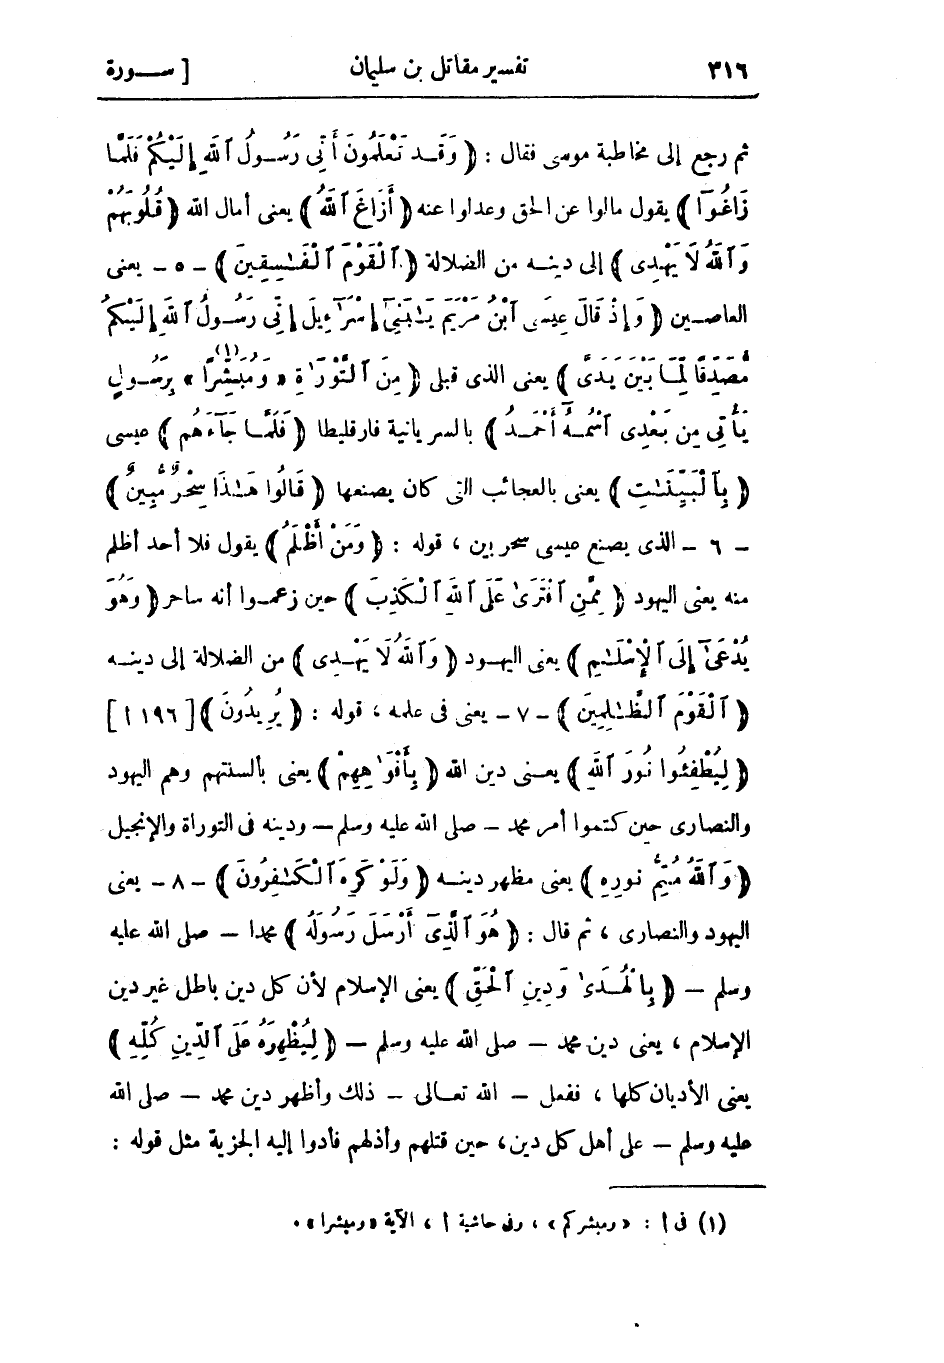 ٣١٦ تفسير مقاتل بن سليمان [ ســـورة
ثم رجع إلى مخاطبة موسى فقال : ﴿ وَقَــد تَعْلَمُونَ أَنِّى رَسُولُ ٱللَّهِ إِلَيْكُمْ فَلَمَّا
زَاغُوٓا۟ ﴾ يقول مالوا عن الحق وعدلوا عنه ﴿ أَزَاغَ ٱللَّهُ ﴾ يعنى أمال الله ﴿ قُلُوبَهُمْ
وَٱللَّهُ لَا يَهْدِى ﴾ إلى دينـــه من الضلالة ﴿ ٱلْقَوْمَ ٱلْفَـٰسِقِينَ ﴾ - ٥ - يعنى
العاصــين ﴿ وَإِذْ قَالَ عِيسَى ٱبْنُ مَرْيَمَ يَـٰبَنِىٓ إِسْرَٰٓءِيلَ إِنِّى رَسُولُ ٱللَّهِ إِلَيْكُم
مُّصَدِّقًا لِّمَا بَيْنَ يَدَىَّ ﴾ يعنى الذى قبلى ﴿ مِنَ ٱلتَّوْرَىٰةِ « وَمُبَشِّرًا (١) » بِرَسُولٍ
يَأْتِى مِن بَعْدِى ٱسْمُهُۥٓ أَحْمَــدُ ﴾ بالسريانية فارقليطا ﴿ فَلَمَّا جَآءَهُم ﴾ عيسى
﴿ بِٱلْبَيِّنَـٰتِ ﴾ يعنى بالعجائب التى كان يصنعها ﴿ قَالُوا۟ هَـٰذَا سِحْرٌ مُّبِينٌ ﴾
- ٦ - الذى يصنع عيسى سحر بين ، قوله : ﴿ وَمَنْ أَظْلَمُ ﴾ يقول فلا أحد أظلم
منه يعنى اليهود ﴿ مِمَّنِ ٱفْتَرَىٰ عَلَى ٱللَّهِ ٱلْكَذِبَ ﴾ حين زعمــوا أنه ساحر ﴿ وَهُوَ
يُدْعَىٰٓ إِلَى ٱلْإِسْلَـٰمِ ﴾ يعنى اليهــود ﴿ وَٱللَّهُ لَا يَهْــدِى ﴾ من الضلالة إلى دينــه
﴿ ٱلْقَوْمَ ٱلظَّـٰلِمِينَ ﴾ - ٧ - يعنى فى علمه ، قوله : ﴿ يُرِيدُونَ ﴾ [ ١٩٦ أ ]
﴿ لِيُطْفِـُٔوا۟ نُورَ ٱللَّهِ ﴾ يعــنى دين الله ﴿ بِأَفْوَٰهِهِمْ ﴾ يعنى بألسنتهم وهم اليهود
والنصارى حين كتموا أمر محمد - صلى الله عليه وسلم - ودينه فى التوراة والإنجيل
﴿ وَٱللَّهُ مُتِمُّ نُورِهِۦ ﴾ يعنى مظهر دينــه ﴿ وَلَوْ كَرِهَ ٱلْكَـٰفِرُونَ ﴾ - ٨ - يعنى
اليهود والنصارى ، ثم قال : ﴿ هُوَ ٱلَّذِىٓ أَرْسَلَ رَسُولَهُۥ ﴾ محمدا - صلى الله عليه
وسلم - ﴿ بِٱلْهُــدَىٰ وَدِينِ ٱلْحَقِّ ﴾ يعنى الإسلام لأن كل دين باطل غير دين
الإسلام ، يعنى دين محمد - صلى الله عليه وسلم - ﴿ لِيُظْهِرَهُۥ عَلَى ٱلدِّينِ كُلِّهِۦ ﴾
يعنى الأديان كلها ، ففعل - الله تعــالى - ذلك وأظهر دين محمد - صلى الله
عليه وسلم - على أهل كل دين ، حين قتلهم وأذلهم فأدوا إليه الجزية مثل قوله :
(١) فى أ : « ومبشركم » ، وفى حاشية أ ، الآية « ومبشرا » .